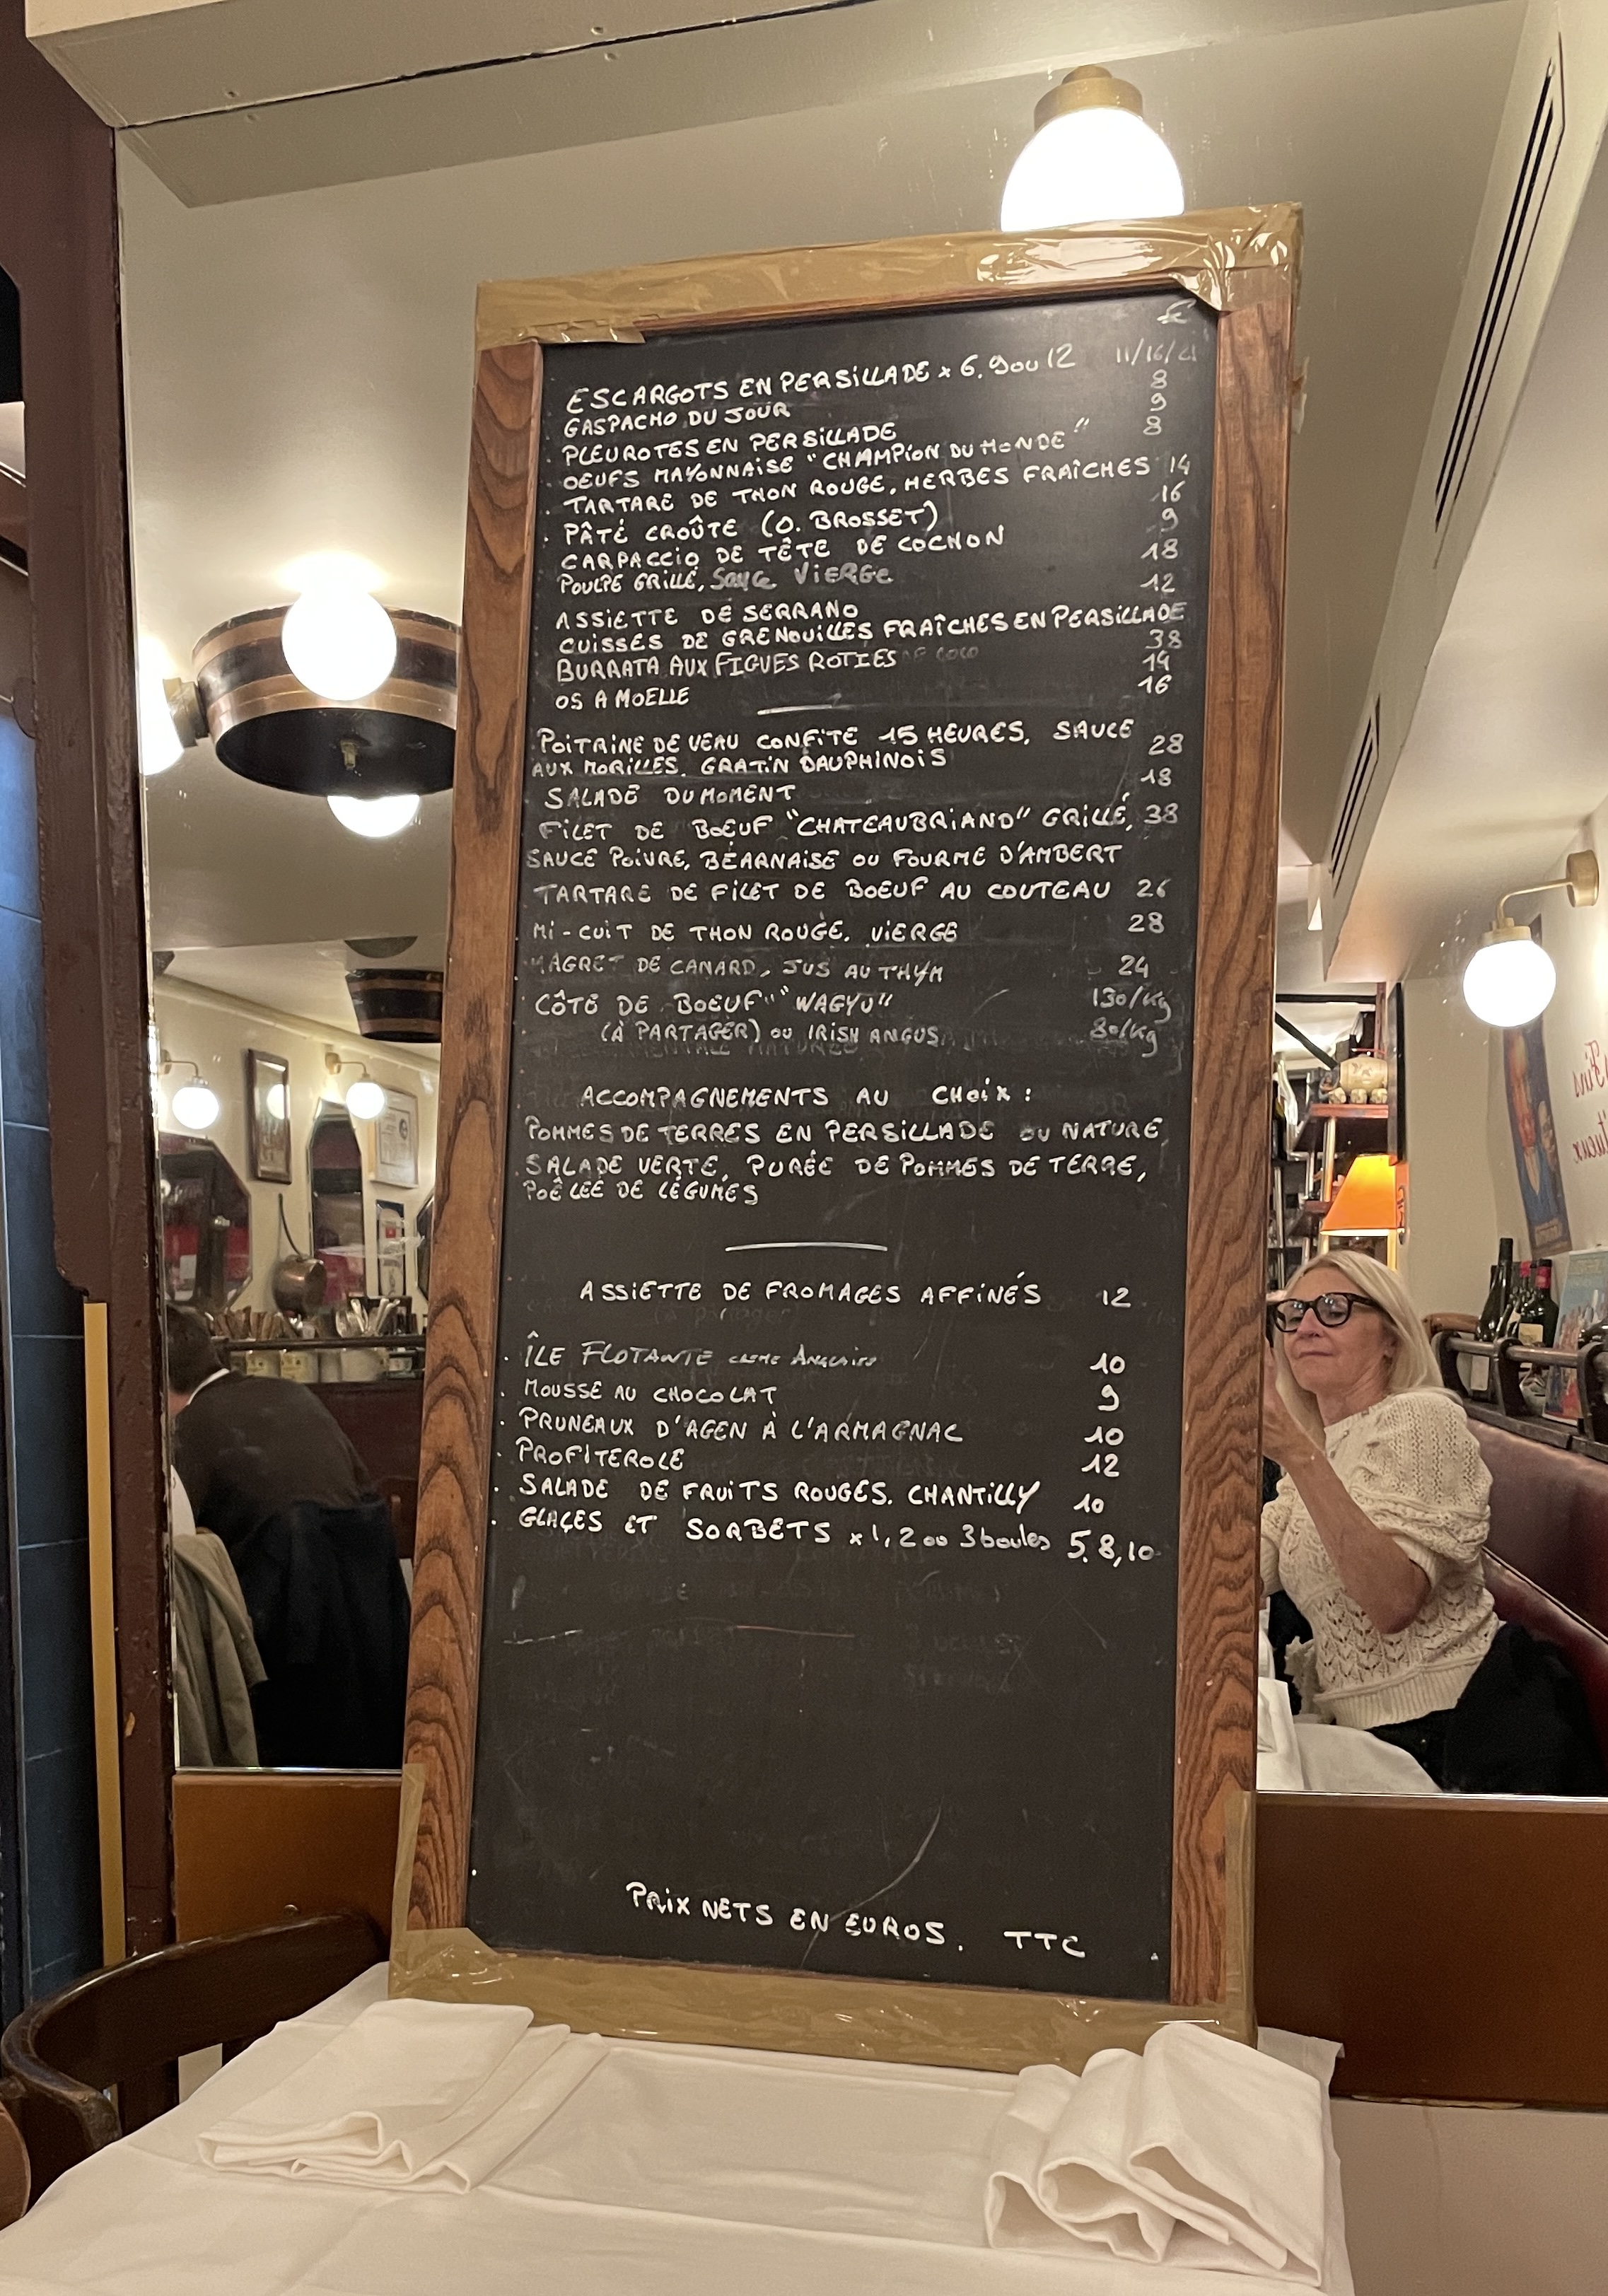 €
ESCARGOTS EN PERSILLADE x 6, 9 ou 12 11/16/21
GASPACHO DU JOUR 8
PLEUROTES EN PERSILLADE 9
OEUFS MAYONNAISE "CHAMPION DU MONDE" 8
TARTARE DE THON ROUGE, HERBES FRAÎCHES 14
PÂTÉ CROÛTE (O. BROSSET) 16
CARPACCIO DE TÊTE DE COCHON 9
POULPE GRILLÉ, Sauce VIERGE 18
ASSIETTE DE SERRANO 12
CUISSES DE GRENOUILLES FRAÎCHES EN PERSILLADE
38
BURRATA AUX FIGUES ROTIES 14
OS A MOELLE 16
POITRINE DE VEAU CONFITE 15 HEURES, SAUCE
AUX MORILLES, GRATIN DAUPHINOIS 28
SALADE DU MOMENT 18
FILET DE BOEUF "CHATEAUBRIAND" GRILLÉ, 38
SAUCE POIVRE, BÉARNAISE OU FOURME D'AMBERT
TARTARE DE FILET DE BOEUF AU COUTEAU 26
MI-CUIT DE THON ROUGE, VIERGE 28
MAGRET DE CANARD, JUS AU THYM 24
CÔTE DE BOEUF "WAGYU" 130/Kg
(À PARTAGER) OU IRISH ANGUS 80/Kg
ACCOMPAGNEMENTS AU CHOIX :
POMMES DE TERRES EN PERSILLADE OU NATURE,
SALADE VERTE, PURÉE DE POMMES DE TERRE,
POÊLÉE DE LÉGUMES
ASSIETTE DE FROMAGES AFFINÉS 12
· ÎLE FLOTANTE CREME ANGLAISE 10
· MOUSSE AU CHOCOLAT 9
· PRUNEAUX D'AGEN À L'ARMAGNAC 10
· PROFITEROLE 12
· SALADE DE FRUITS ROUGES, CHANTILLY 10
· GLAÇES ET SORBETS x 1, 2 ou 3 boules 5, 8, 10
PRIX NETS EN EUROS. TTC